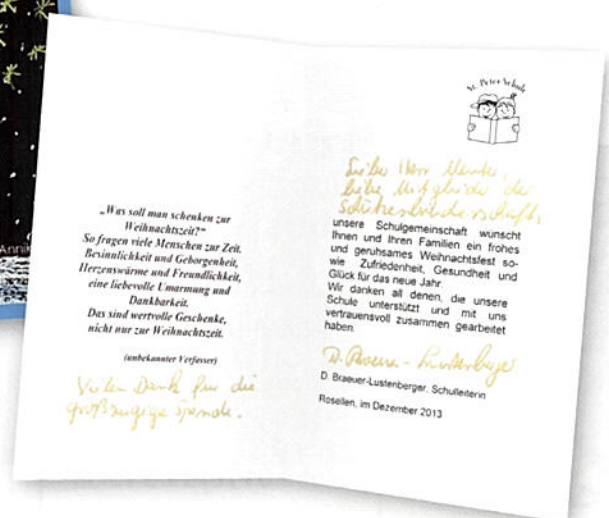 Annik
„Was soll man schenken zur
Weihnachtszeit?“
So fragen viele Menschen zur Zeit.
Besinnlichkeit und Geborgenheit,
Herzenswärme und Freundlichkeit,
eine liebevolle Umarmung und
Dankbarkeit.
Das sind wertvolle Geschenke,
nicht nur zur Weihnachtszeit.
(unbekannter Verfasser)
Vielen Dank für die
großzügige Spende.
St. Peter Schule
Lieber Herr
liebe Mitglieder der
Schützenbruderschaft,
unsere Schulgemeinschaft wünscht
Ihnen und Ihren Familien ein frohes
und geruhsames Weihnachtsfest so-
wie Zufriedenheit, Gesundheit und
Glück für das neue Jahr.
Wir danken all denen, die unsere
Schule unterstützt und mit uns
vertrauensvoll zusammen gearbeitet
haben.
D. Braeuer-Lustenberger
D. Braeuer-Lustenberger, Schulleiterin
Rosellen, im Dezember 2013